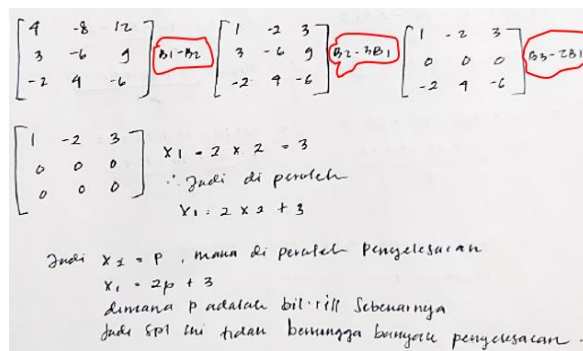 4 -8 12 1 -2 3 1 -2 3
3 -6 9 B1-B2 3 -6 9 B2-3B1 0 0 0 B3-2B1
-2 4 -6 -2 4 -6 -2 4 -6
1 -2 3
0 0 0
0 0 0
x1 - 2 x 2 = 3
∴ Jadi di peroleh
x1 = 2 x 2 + 3
Jadi x2 = p, maka di peroleh penyelesaian
x1 = 2p + 3
dimana p adalah bil. rill sebenarnya
Jadi spl ini tidak berhingga banyak penyelesaian.